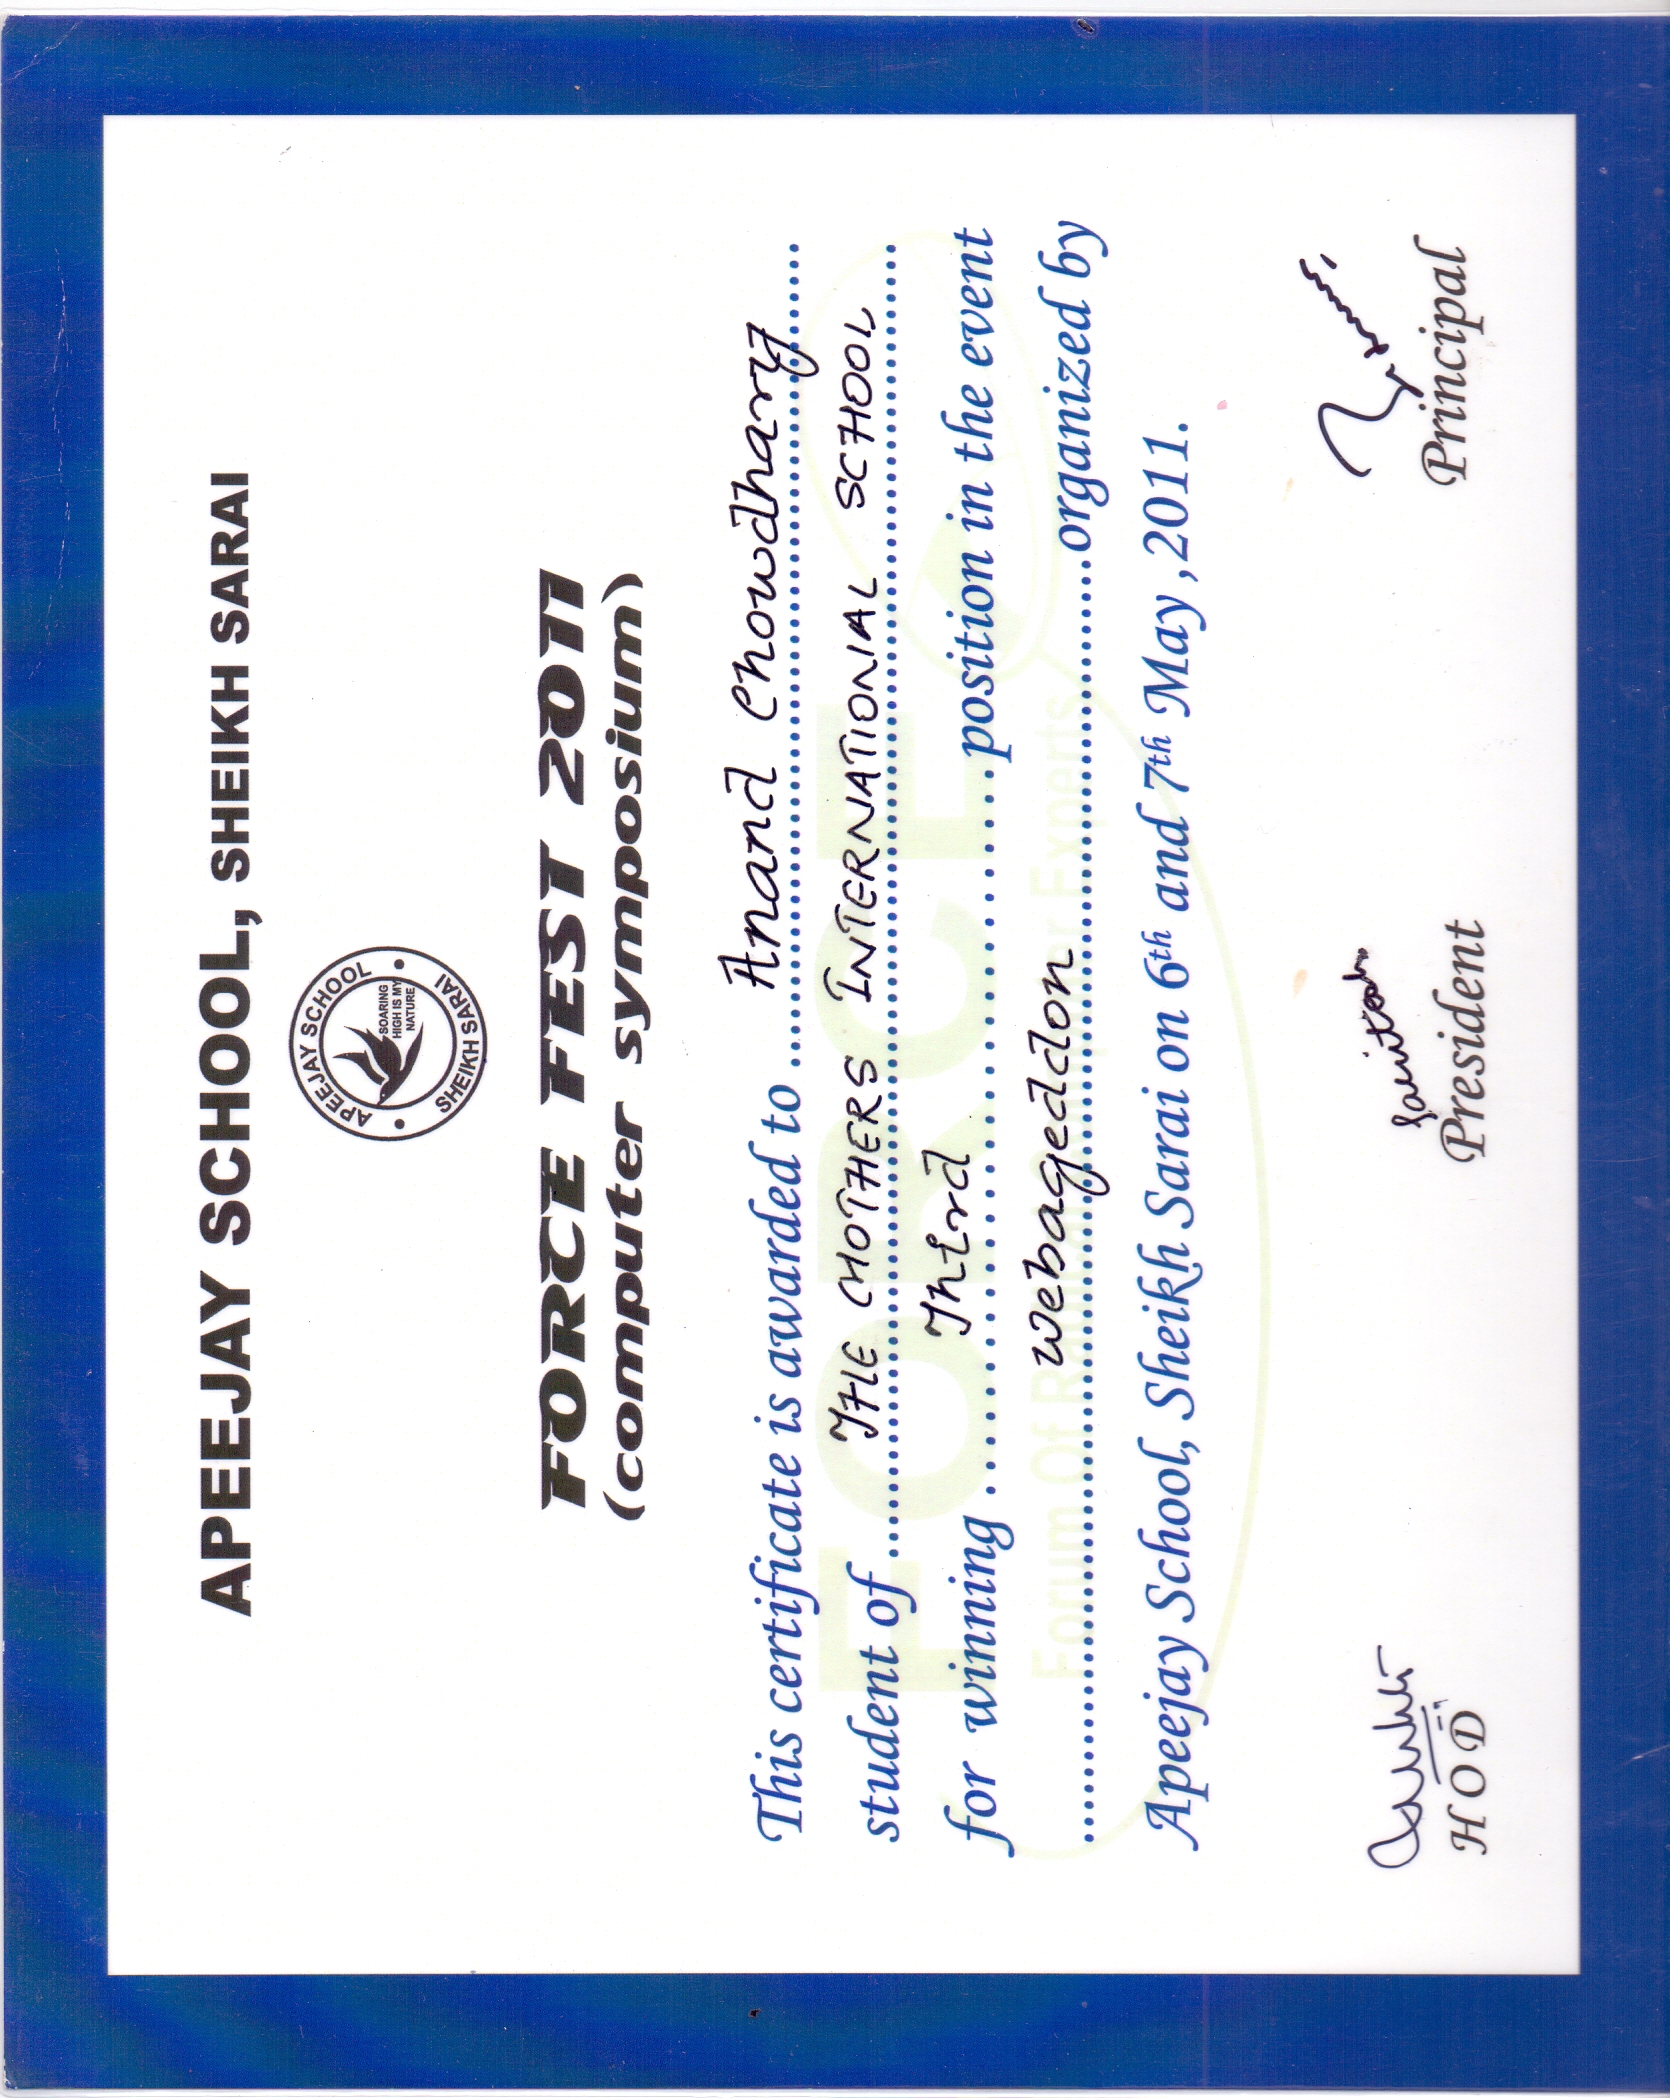 APEEJAY SCHOOL, SHEIKH SARAI
APEEJAY SCHOOL
SOARING
HIGH IS MY
NATURE
SHEIKH SARAI
FORCE FEST 2011
(computer symposium)
This certificate is awarded to Anand Chowdhary
student of THE MOTHERS INTERNATIONAL SCHOOL
for winning Third position in the event
Webageddon organized by
Apeejay School, Sheikh Sarai on 6th and 7th May ,2011.
FORCE
Forum Of Radical Computer Experts
HOD
President
Principal